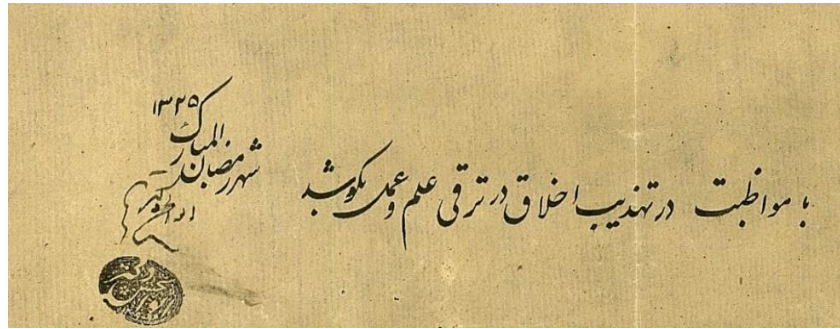 با مواظبت در تهذیب اخلاق در ترقی علم و عمل بکوشد
شهر رمضان المبارک
۱۳۲۵